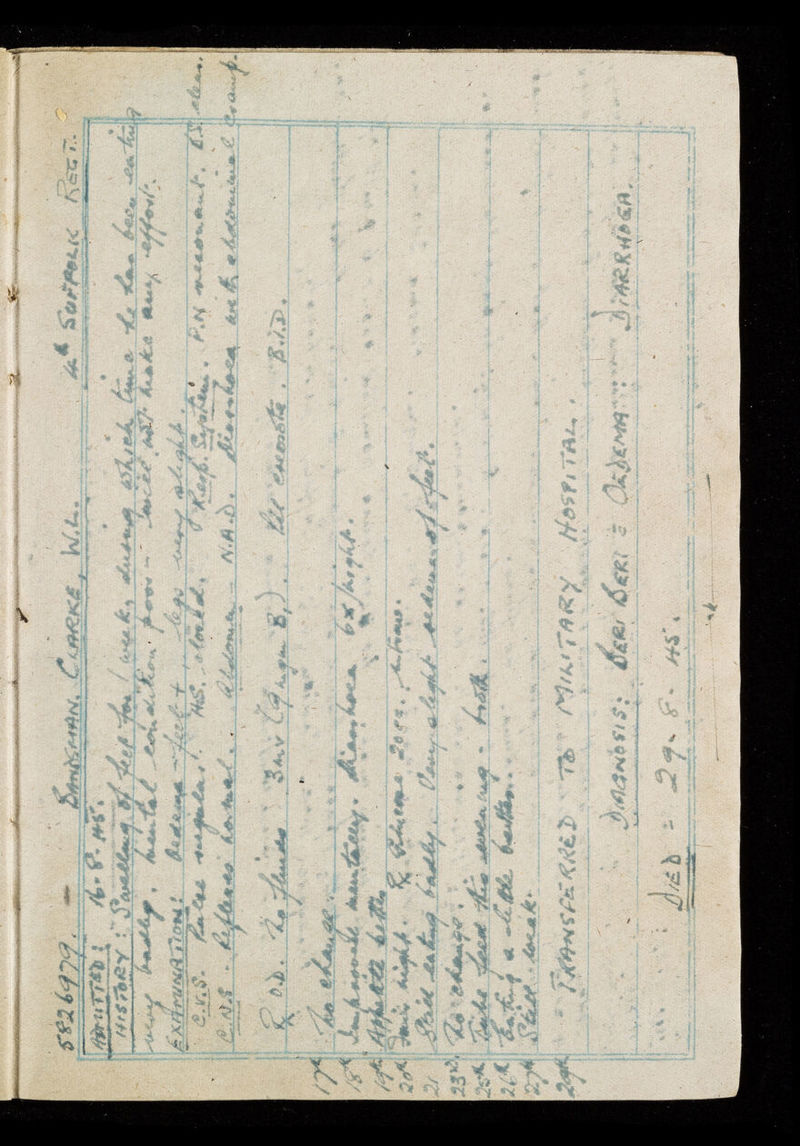 5826979. — BANDSMAN. CLARKE, W.L. 4th SUFFOLK REGT.
ADMITTED: 16-8-45.
HISTORY: Swelling of feet for 1 week, during which time he has been eating
very badly. Mental condition poor - will not make any effort.
EXAMINATION: Oedema - feet + , legs very slight.
C.V.S. Pulse regular. H.S. Resp. System. P.N resonant. B.S. clear.
C.N.S. Reflexes normal. Abdomen - N.A.D. Diarrhoea with abdominal cramp.
R O.D. No fluids 3 mv (9 mgm B1). B.I.D.
17th No change.
18th Improved mentally. Diarrhoea 6x/night.
19th Appetite better
20th Fair night. R Glucose 20cc.
21 Still eating badly. Very slight oedema of feet.
23rd. No change.
25th Tube feed this evening - broth.
26th Eating a little better.
27th Still weak.
29th TRANSFERRED TO MILITARY HOSPITAL.
DIAGNOSIS: BERI BERI = OEDEMA: DIARRHOEA.
DIED = 29-8-45.